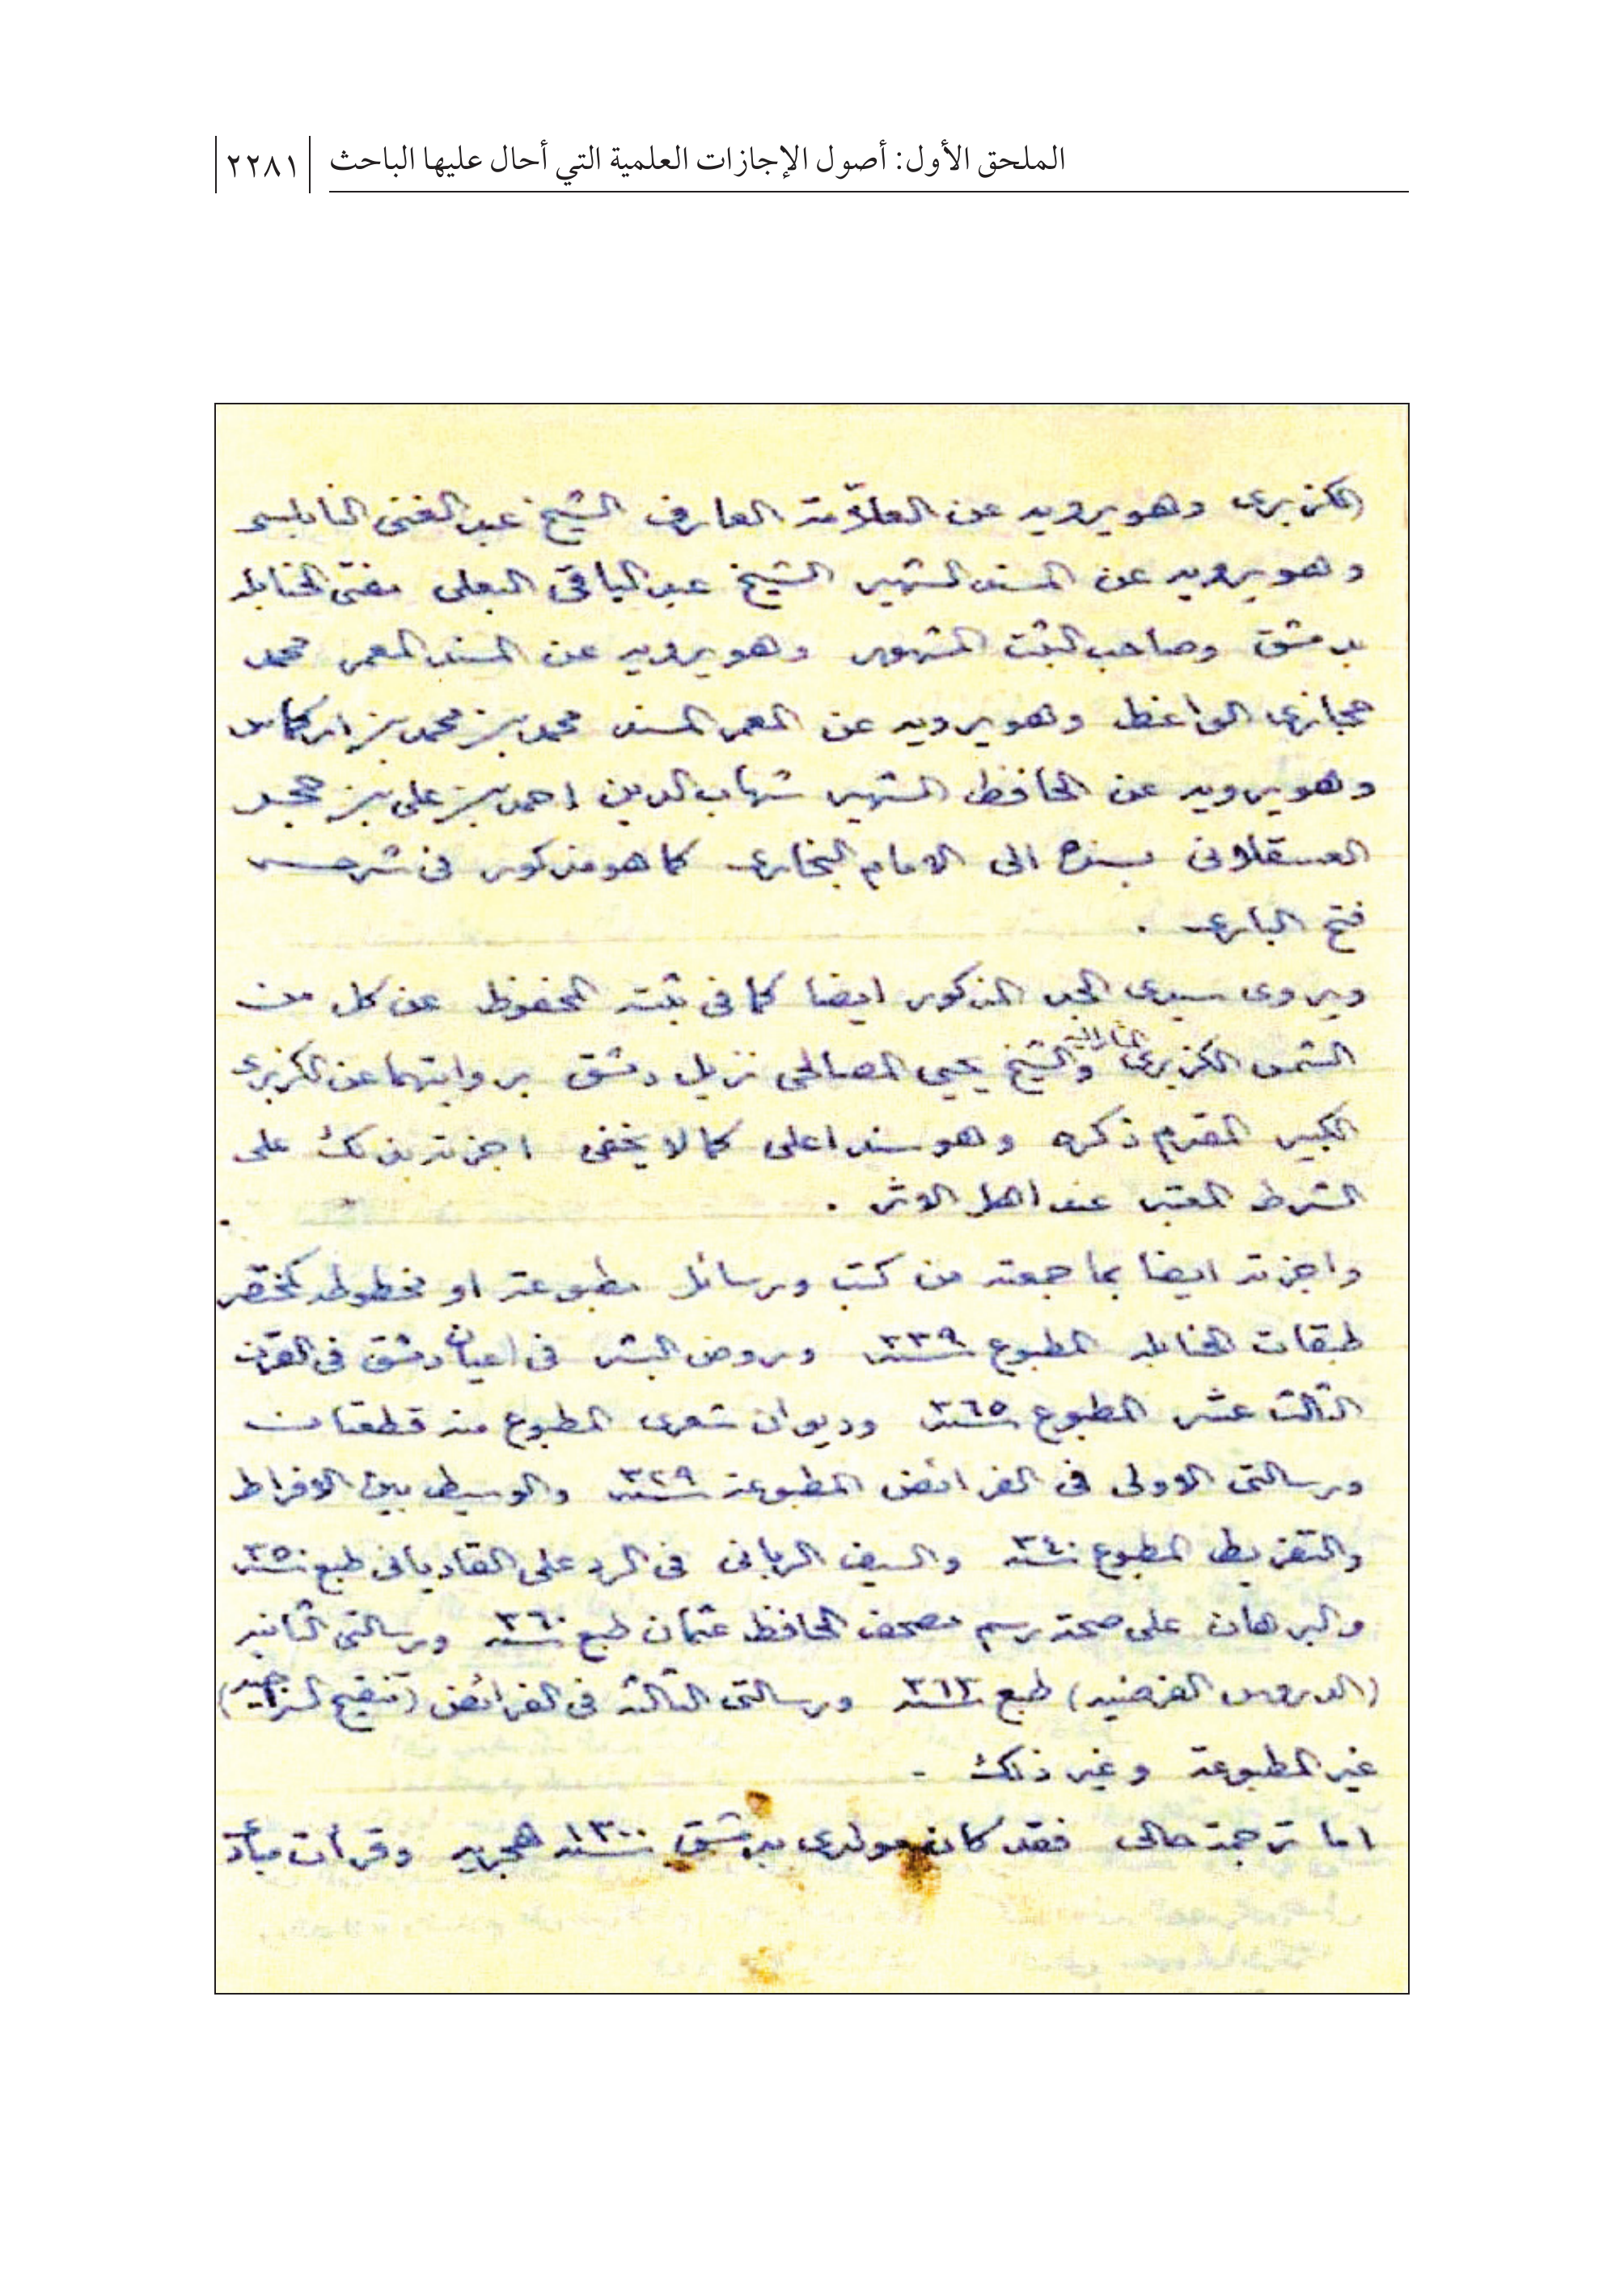 الملحق الأول: أصول الإجازات العلمية التي أحال عليها الباحث ٢٢٨١
الكزبرى وهو يرويه عن العلّامة العارف الشيخ عبد الغنى النابلسى
وهو يرويه عن المسند الشهير الشيخ عبد الباقى البعلى مفتى الحنابله
بدمشق وصاحب الثبت المشهور وهو يرويه عن المسند المعمر محمد
حجازى الواعظ وهو يرويه عن المعمر المسند محمد بن محمد بن اركماس
وهو يرويه عن الحافظ الشهير شهاب الدين احمد بن على بن حجر
العسقلانى بسنده الى الامام البخارى كما هو مذكور فى شرحه
فتح البارى .
ويروى سيدى الجد المذكور ايضا كما فى ثبته المحفوظ عن كل من
الشمس الكزبرى والشيخ يحيى المصالحى نزيل دمشق بروايتهما عن الكزبرى
الكبير المقدم ذكره وهو سند اعلى كما لا يخفى اجزته بذلك على
الشرط المعتبر عند اهل الاثر .
واجزته ايضا بما جمعته من كتب ورسائل مطبوعة او مخطوطه كمختصر
طبقات الحنابله المطبوع سنة ٣٣٩ وروض البشر فى اعيان دمشق فى القرن
الثالث عشر المطبوع سنة ٣٦٥ وديوان شعرى المطبوع منه قطعتان
ورسالتى الاولى فى الفرائض المطبوعة سنة ٣٢٩ والوسيط بين الافراط
والتفريط المطبوع سنة ٣٤٠ والسيف الربانى فى الرد على القاديانى طبع سنة ٣٥٠
والبرهان على صحة رسم مصحف الحافظ عثمان طبع سنة ٣٦٠ ورسالتى الثانيه
(الدروس الفرضيه) طبع سنة ٣٦٣ ورسالتى الثالثه فى الفرائض (تنقيح السراجيه)
غير المطبوعة وغير ذلك -
اما ترجمة حالى فقد كان مولدى بدمشق سنة ١٣٠٠ هجريه وقرأت مبادئ